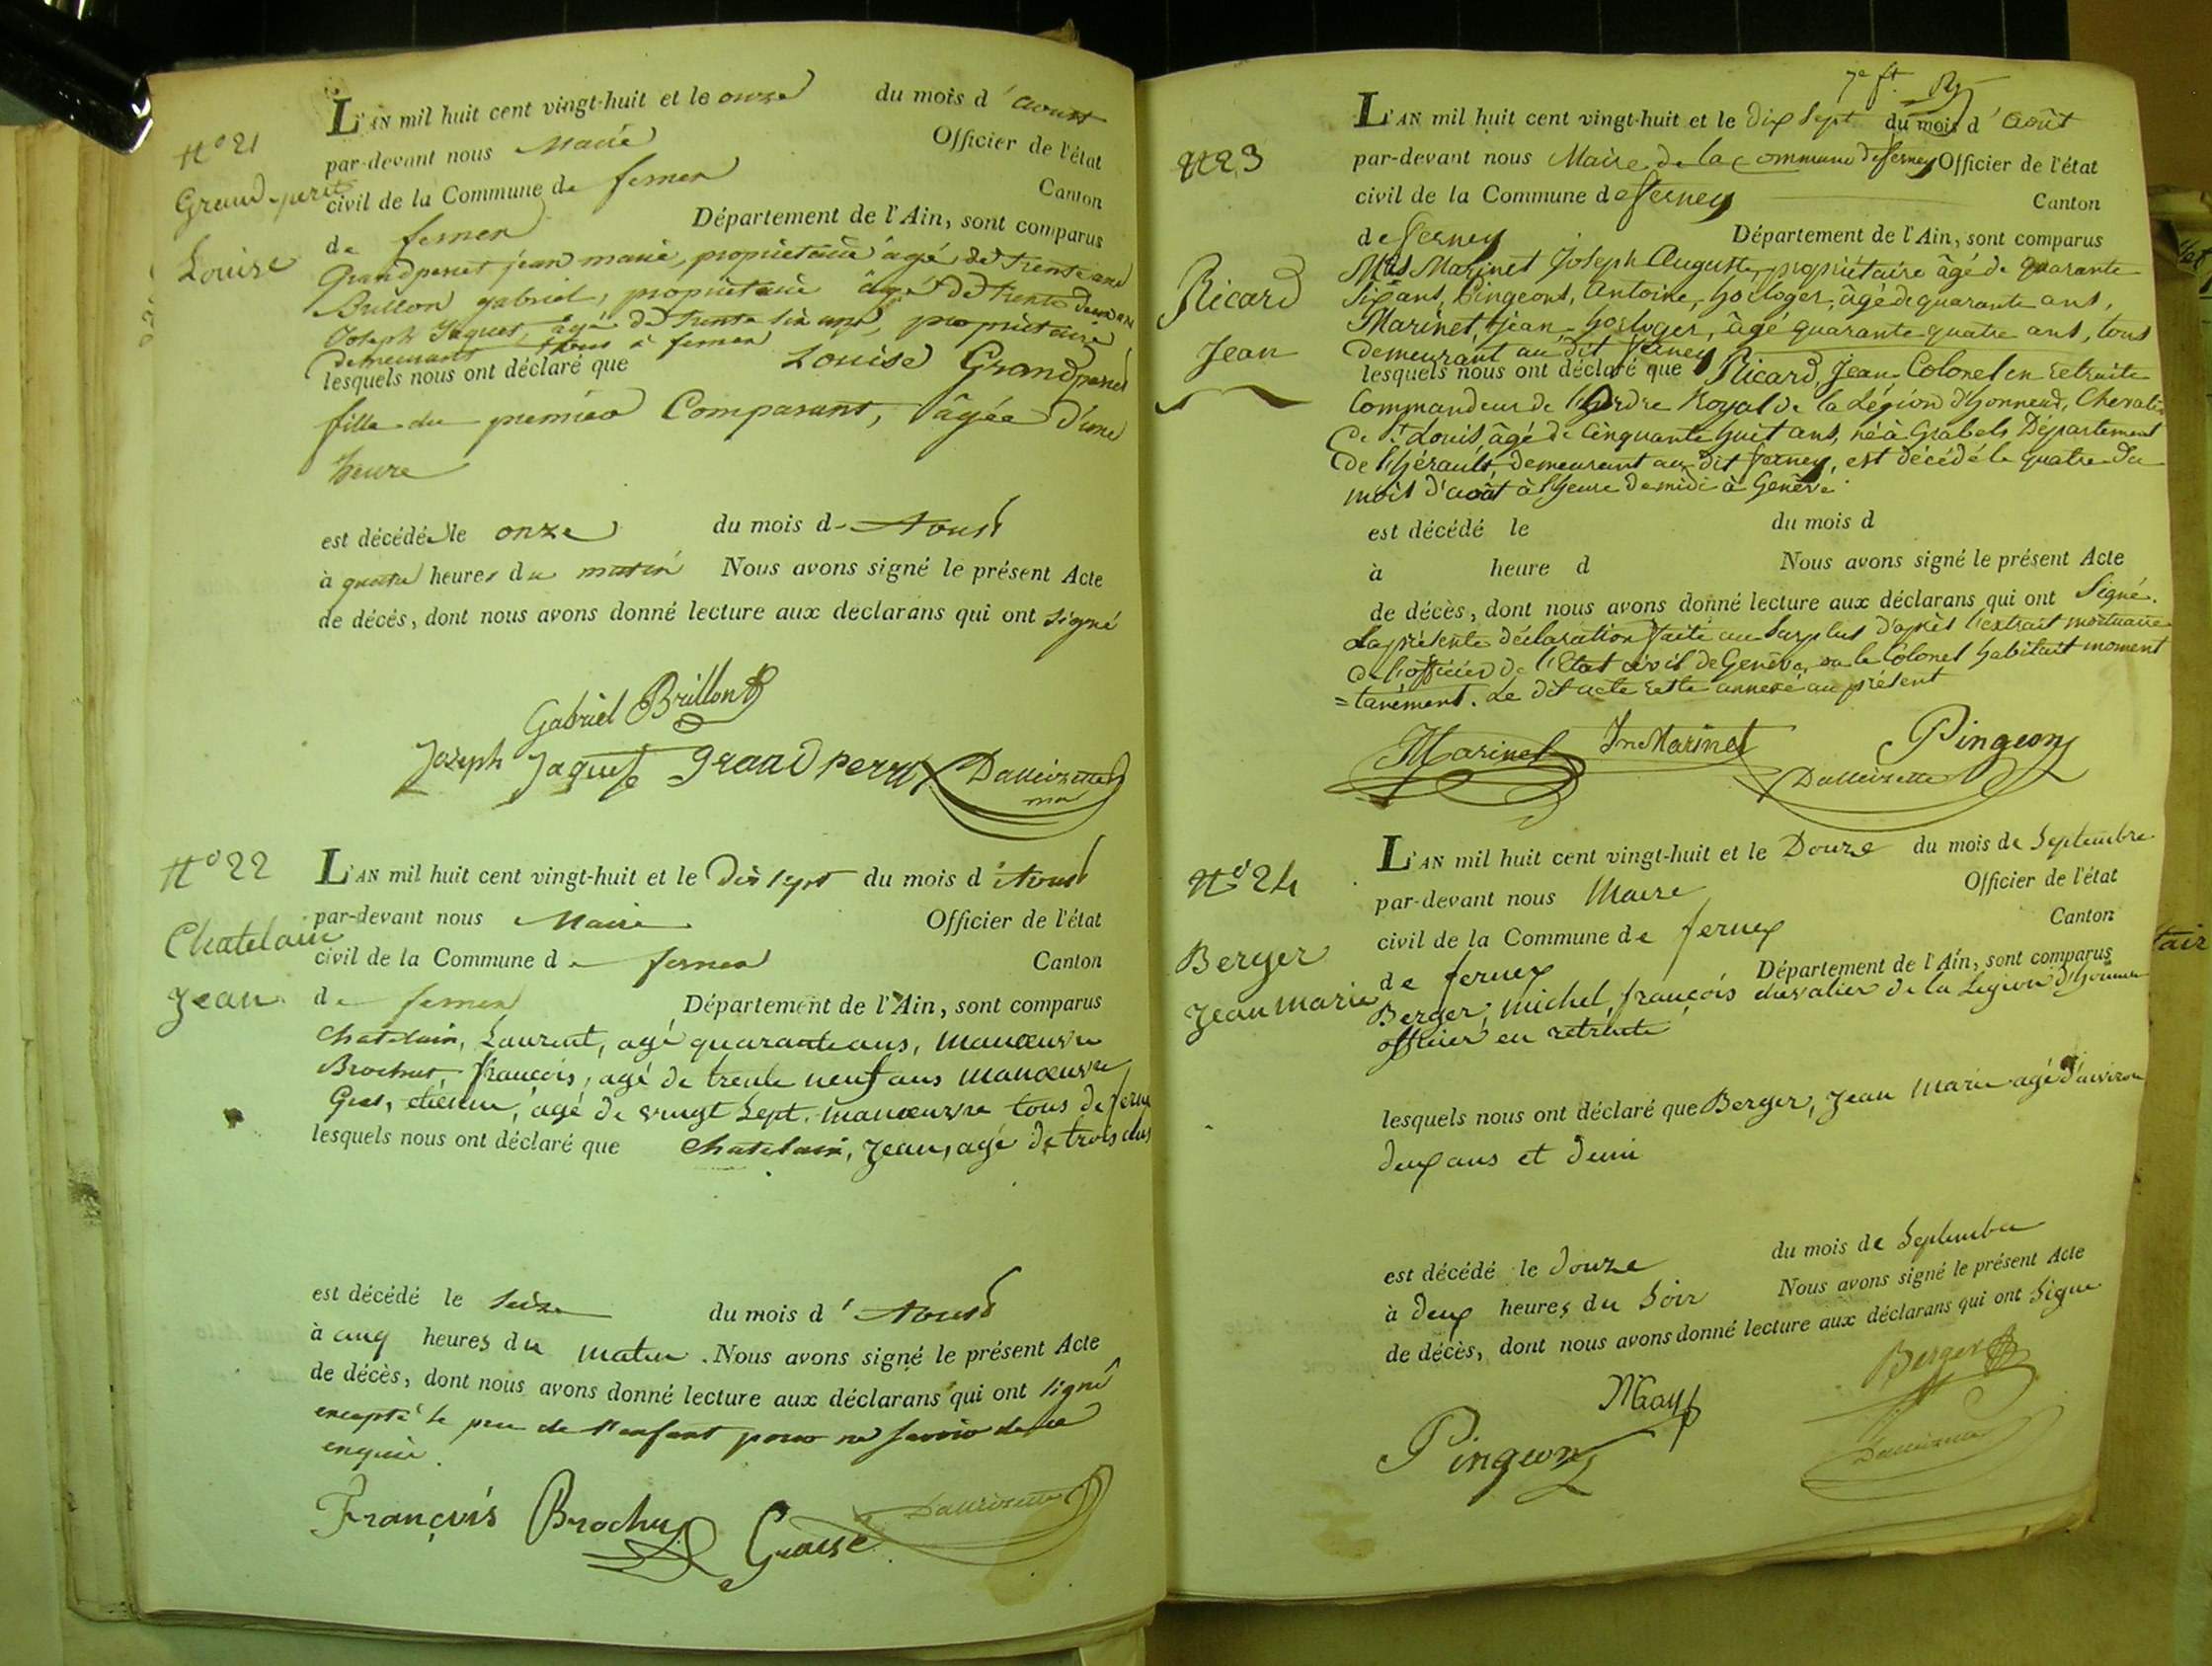 N° 21
Grandperret
Louise
L'AN mil huit cent vingt-huit et le onze du mois d'aoust
par-devant nous Maire Officier de l'état
civil de la Commune de fernex Canton
de fernex Département de l'Ain, sont comparus
Grandperret jean marie, propriétaire âgé de trente ans
Brillon gabriel, propriétaire âgé de trente deux ans
Joseph Jaquet, âgé de trente six ans, propriétaire
demeurants tous à fernex
lesquels nous ont déclaré que Louise Grandperret
fille du premier Comparant, âgée d'une
heure
est décédée le onze du mois d- Aoust
à quatre heures du matin Nous avons signé le présent Acte
de décés, dont nous avons donné lecture aux déclarans qui ont signé
Gabriel Brillon
Joseph Jaquet grand perret
N° 22
Chatelain
Jean
L'AN mil huit cent vingt-huit et le dix sept du mois d'Aoust
par-devant nous Maire Officier de l'état
civil de la Commune de fernex Canton
de fernex Département de l'Ain, sont comparus
Chatelain, Laurent, agé quarante ans, manœuvre
Brochut françois, agé de trente neuf ans manœuvre
étienne, agé de vingt sept. manœuvre tous de ferne
lesquels nous ont déclaré que Chatelain, Jean, agé de trois ans
est décédé le seize du mois d' Aoust
à cinq heures du matin. Nous avons signé le présent Acte
de décès, dont nous avons donné lecture aux déclarans qui ont signé
excepté le pere de l'enfant pour ne savoir de ce
enquis.
François Brochu
N° 23
Ricard
Jean
L'AN mil huit cent vingt-huit et le dix sept du mois d'août
par-devant nous Maire de la commune de ferney Officier de l'état
civil de la Commune de ferney Canton
de ferney Département de l'Ain, sont comparus
Mrs Marinet Joseph Auguste, propriétaire âgé de quarante
six ans, Pingeons, Antoine, horloger, âgé de quarante ans,
Marinet, jean, horloger, âgé quarante quatre ans, tous
demeurant au dit ferney
lesquels nous ont déclaré que Ricard, Jean, Colonel en retraite
Commandeur de l'Ordre Royal de la Légion d'honneur, Chevalier
de St Louis, âgé de cinquante huit ans, né à Grabels Département
de l'hérault, demeurant au dit ferney, est décédé le quatre du
mois d'août à l'heure de midi à Genève
est décédé le du mois d
à heure d Nous avons signé le présent Acte
de décès, dont nous avons donné lecture aux déclarans qui ont signé.
La présente déclaration faite au surplus d'après l'extrait mortuaire
de l'officier de l'Etat civil de Genève, ou le Colonel habitait momen
=tanément. Le dit acte reste annexé au présent
Marinet Jn Marinet Pingeon
N° 24
Berger
Jean Marie
L'AN mil huit cent vingt-huit et le Douze du mois de Septembre
par-devant nous Maire Officier de l'état
civil de la Commune de fernex Canton
de fernex Département de l'Ain, sont comparus
Berger, michel, françois chevalier de la Légion d'honneur
officier en retraite
lesquels nous ont déclaré que Berger, Jean Marie agé d'environ
deux ans et demi
est décédé le douze du mois de Septembre
à deux heures du soir Nous avons signé le présent Acte
de décès, dont nous avons donné lecture aux déclarans qui ont signé
Berger
May
Pingeon